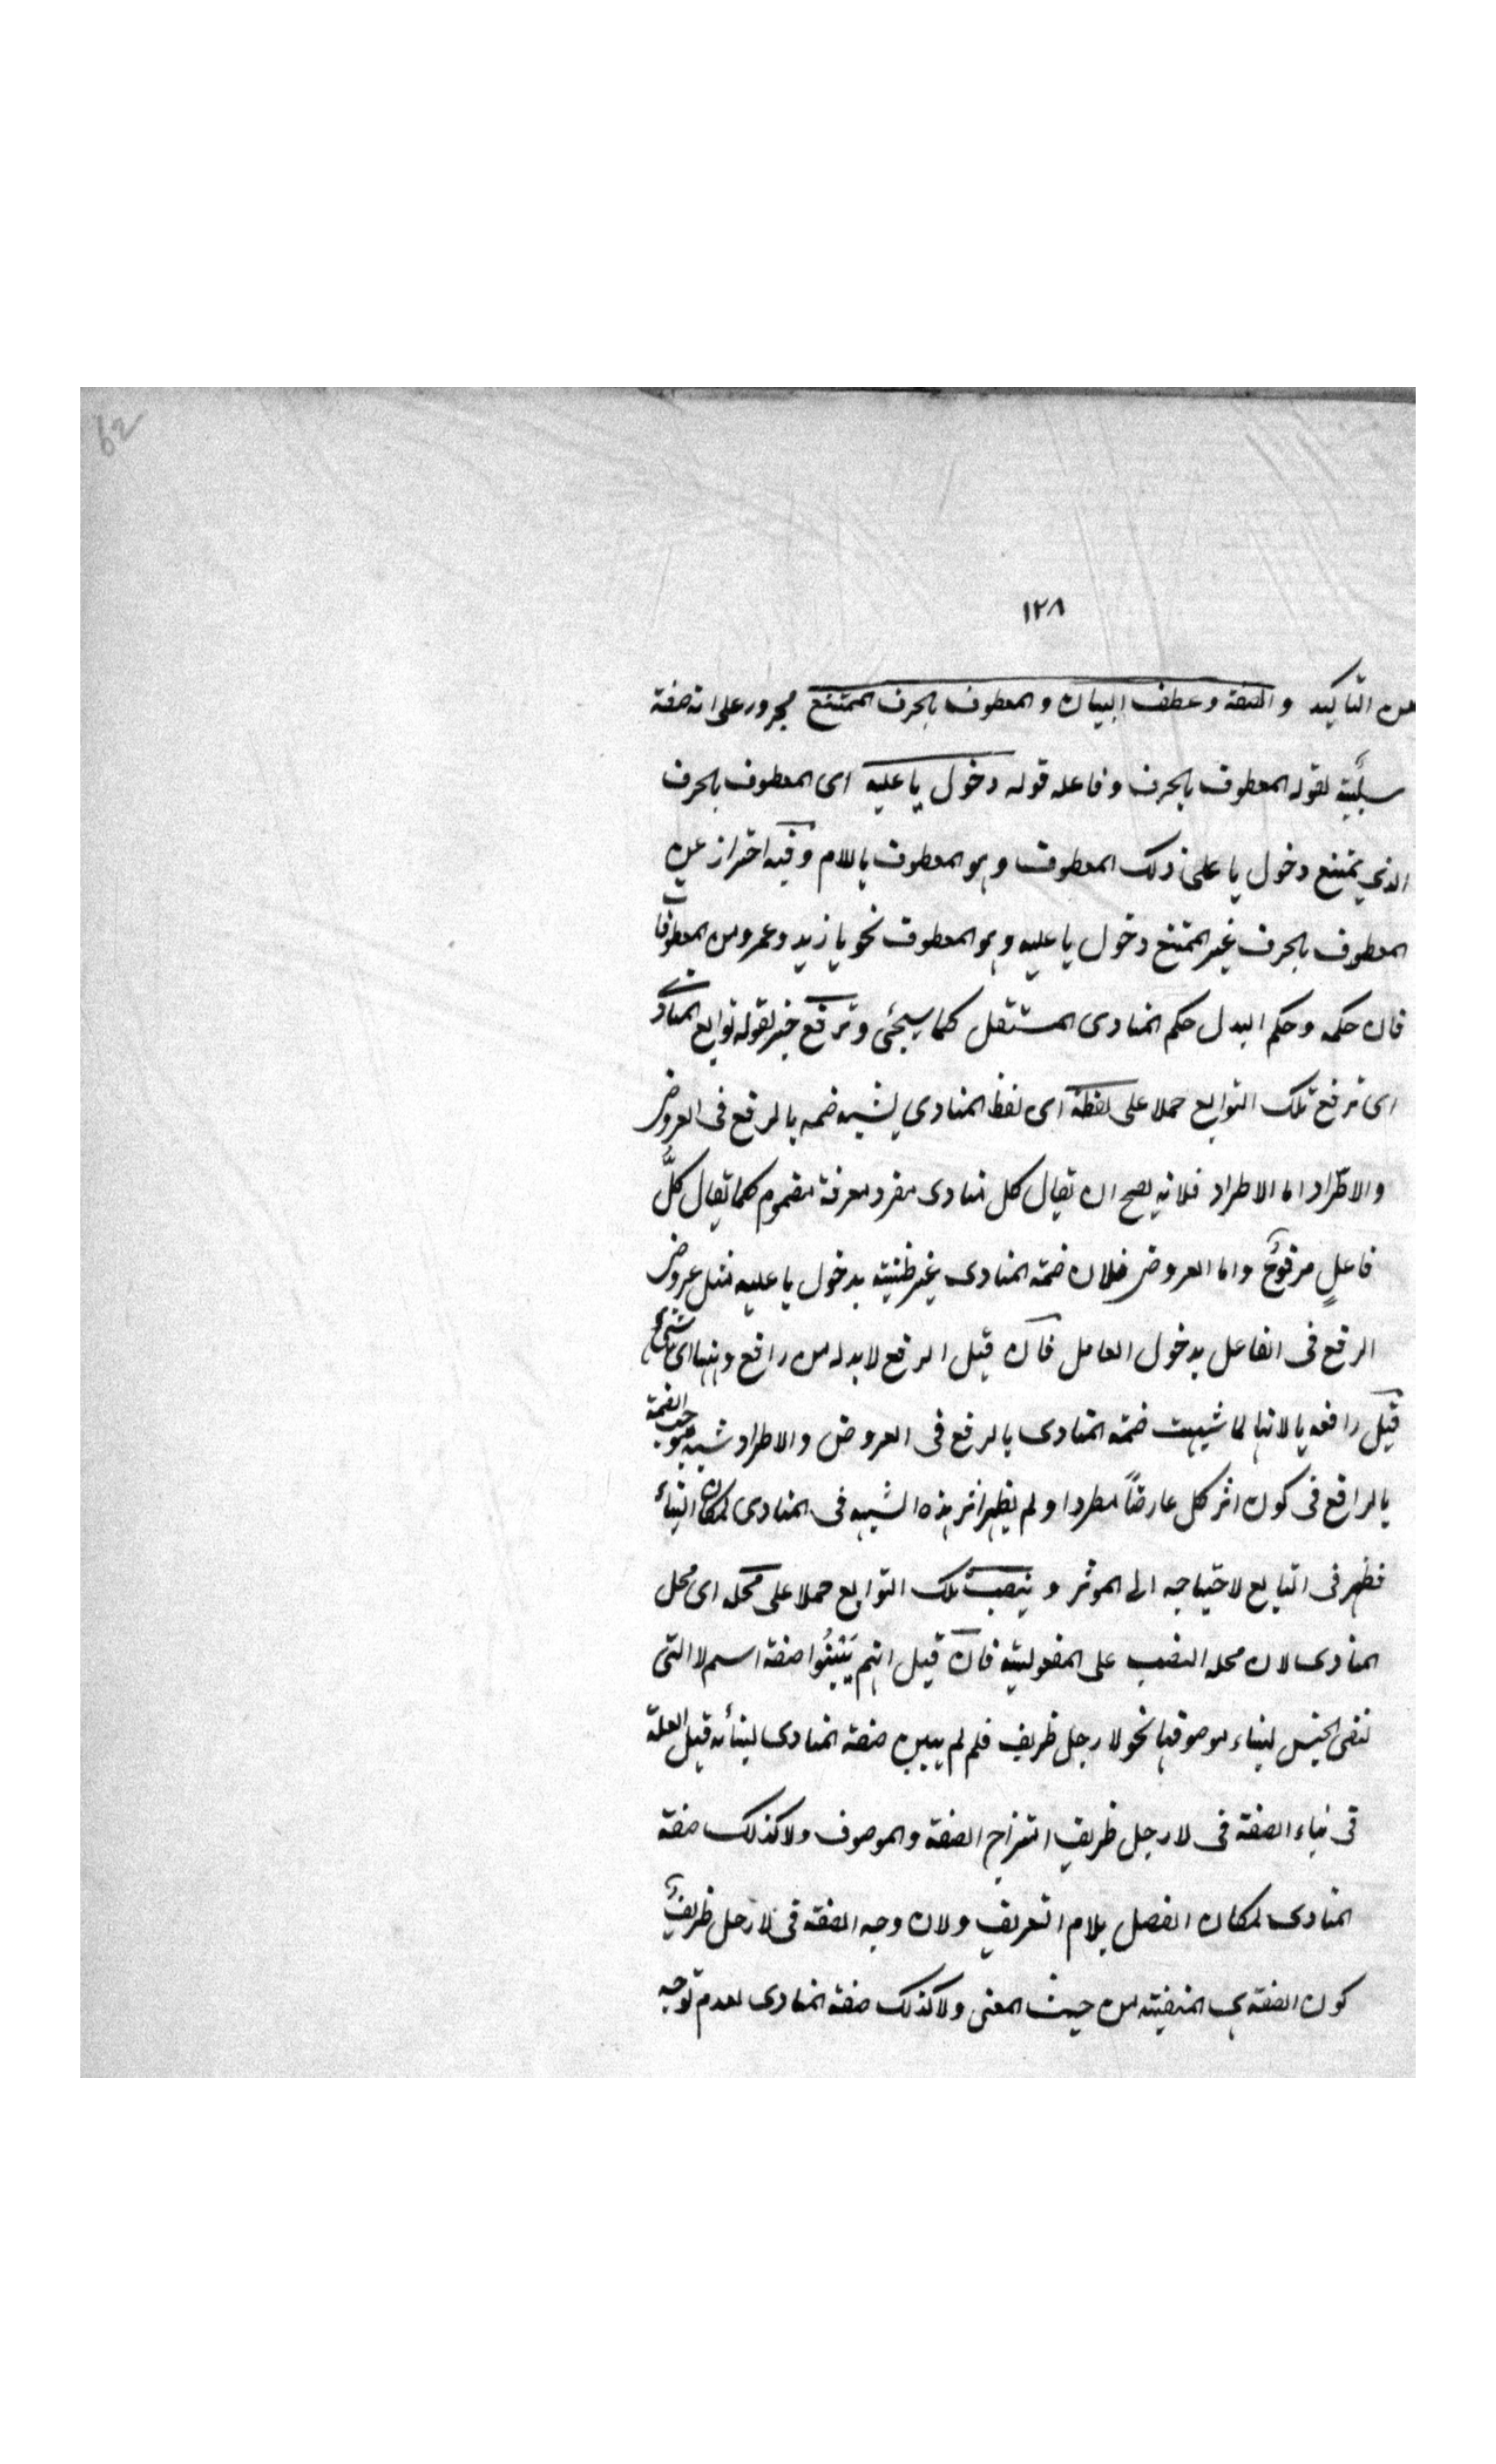 62
١٢٨
من التأكيد والصفة وعطف البيان والمعطوف بالحرف الممتنع مجرور على انه صفة
سببية لقوله المعطوف بالحرف وفاعله قوله دخول يا عليه اى المعطوف بالحرف
الذي يمتنع دخول يا على ذلك المعطوف وهو المعطوف باللام وفيه احتراز عن
المعطوف بالحرف غير الممتنع دخول يا عليه وهو المعطوف نحو يا زيد وعمرو من المعطوفات
فان حكمه وحكم البدل حكم المنادى المستقل كما سيجئ وترفع خبر لقوله توابع المنادى
اى ترفع تلك التوابع حملا على لفظه اى لفظ المنادي لشبه ضمه بالرفع فى العروض
والاطّراد اما الاطراد فلانه يصح ان يقال كل منادى مفرد معرفة مضموم كما يقال كلُّ
فاعلٍ مرفوعٌ واما العروض فلان ضمة المنادى غير بدخول يا عليه مثل عروض
الرفع فى الفاعل بدخول العامل فان قيل الرفع لابد له من رافع وههنا اى شئ
قيل رافعه يا لانها لما شبهت ضمة المنادى بالرفع فى العروض والاطراد شبه موجب الضمة
بالرافع فى كون اثر كل عارضاً مطردا ولم يظهر اثر هذه الشبه فى المنادى لمكان البناء
فظهر فى التابع لاحتياجه الى الموثر وينصب تلك التوابع حملا على محله اى محل
المنادى لان محله النصب على المفعولية فان قيل انهم يَبْنُوا صفة اسم لا التى
لنفى الجنس لبناء موصوفها نحو لا رجل ظريف فلم لم يبن صفة المنادى لبنائه قيل العلة
فى بناء الصفة فى لا رجل ظريف امتزاج الصفة والموصوف ولا كذلك صفة
المنادى لمكان الفصل بلام التعريف ولان وجه الصفة فى لا رجل ظريفٌ
كون الصفة هى المنفية من حيث المعنى ولا كذلك صفة المنادى لعدم توجه